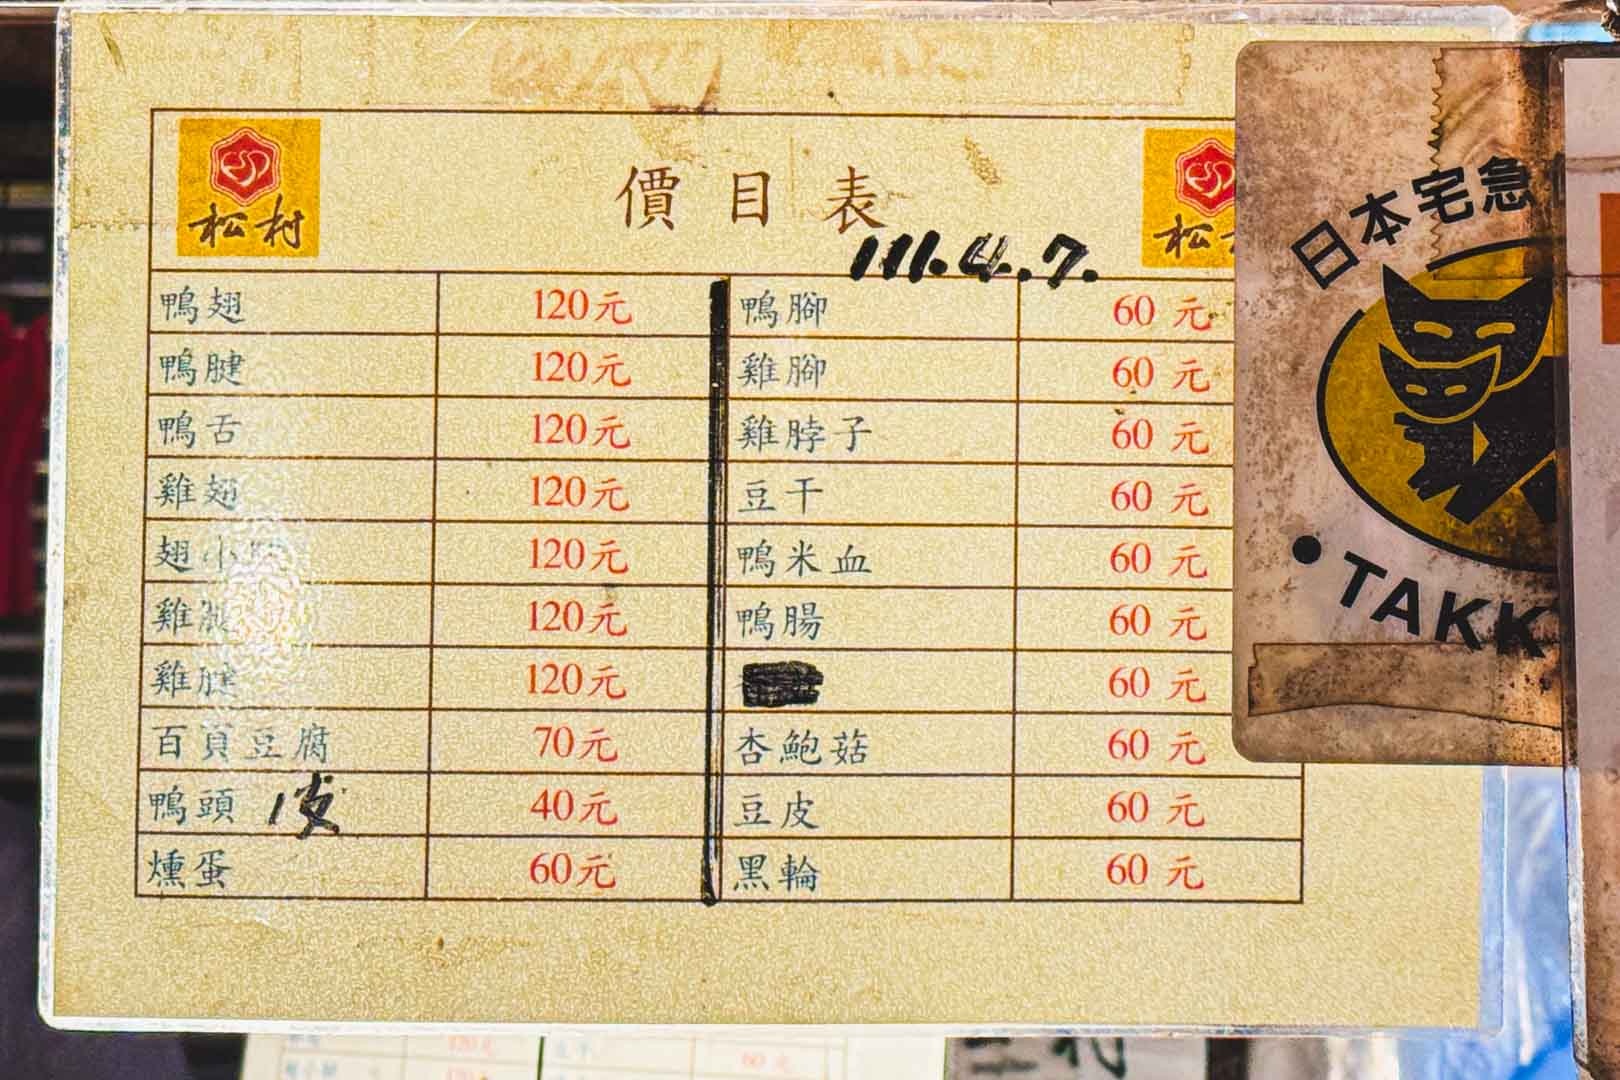 松村
價目表
松
111.4.7.
鴨翅 120元 鴨腳 60元
鴨腱 120元 雞腳 60元
鴨舌 120元 雞脖子 60元
雞翅 120元 豆干 60元
翅小 120元 鴨米血 60元
雞 120元 鴨腸 60元
雞腱 120元 60元
百頁豆腐 70元 杏鮑菇 60元
鴨頭 1支 40元 豆皮 60元
燻蛋 60元 黑輪 60元
日本宅急
TAKK
120元 60元
120